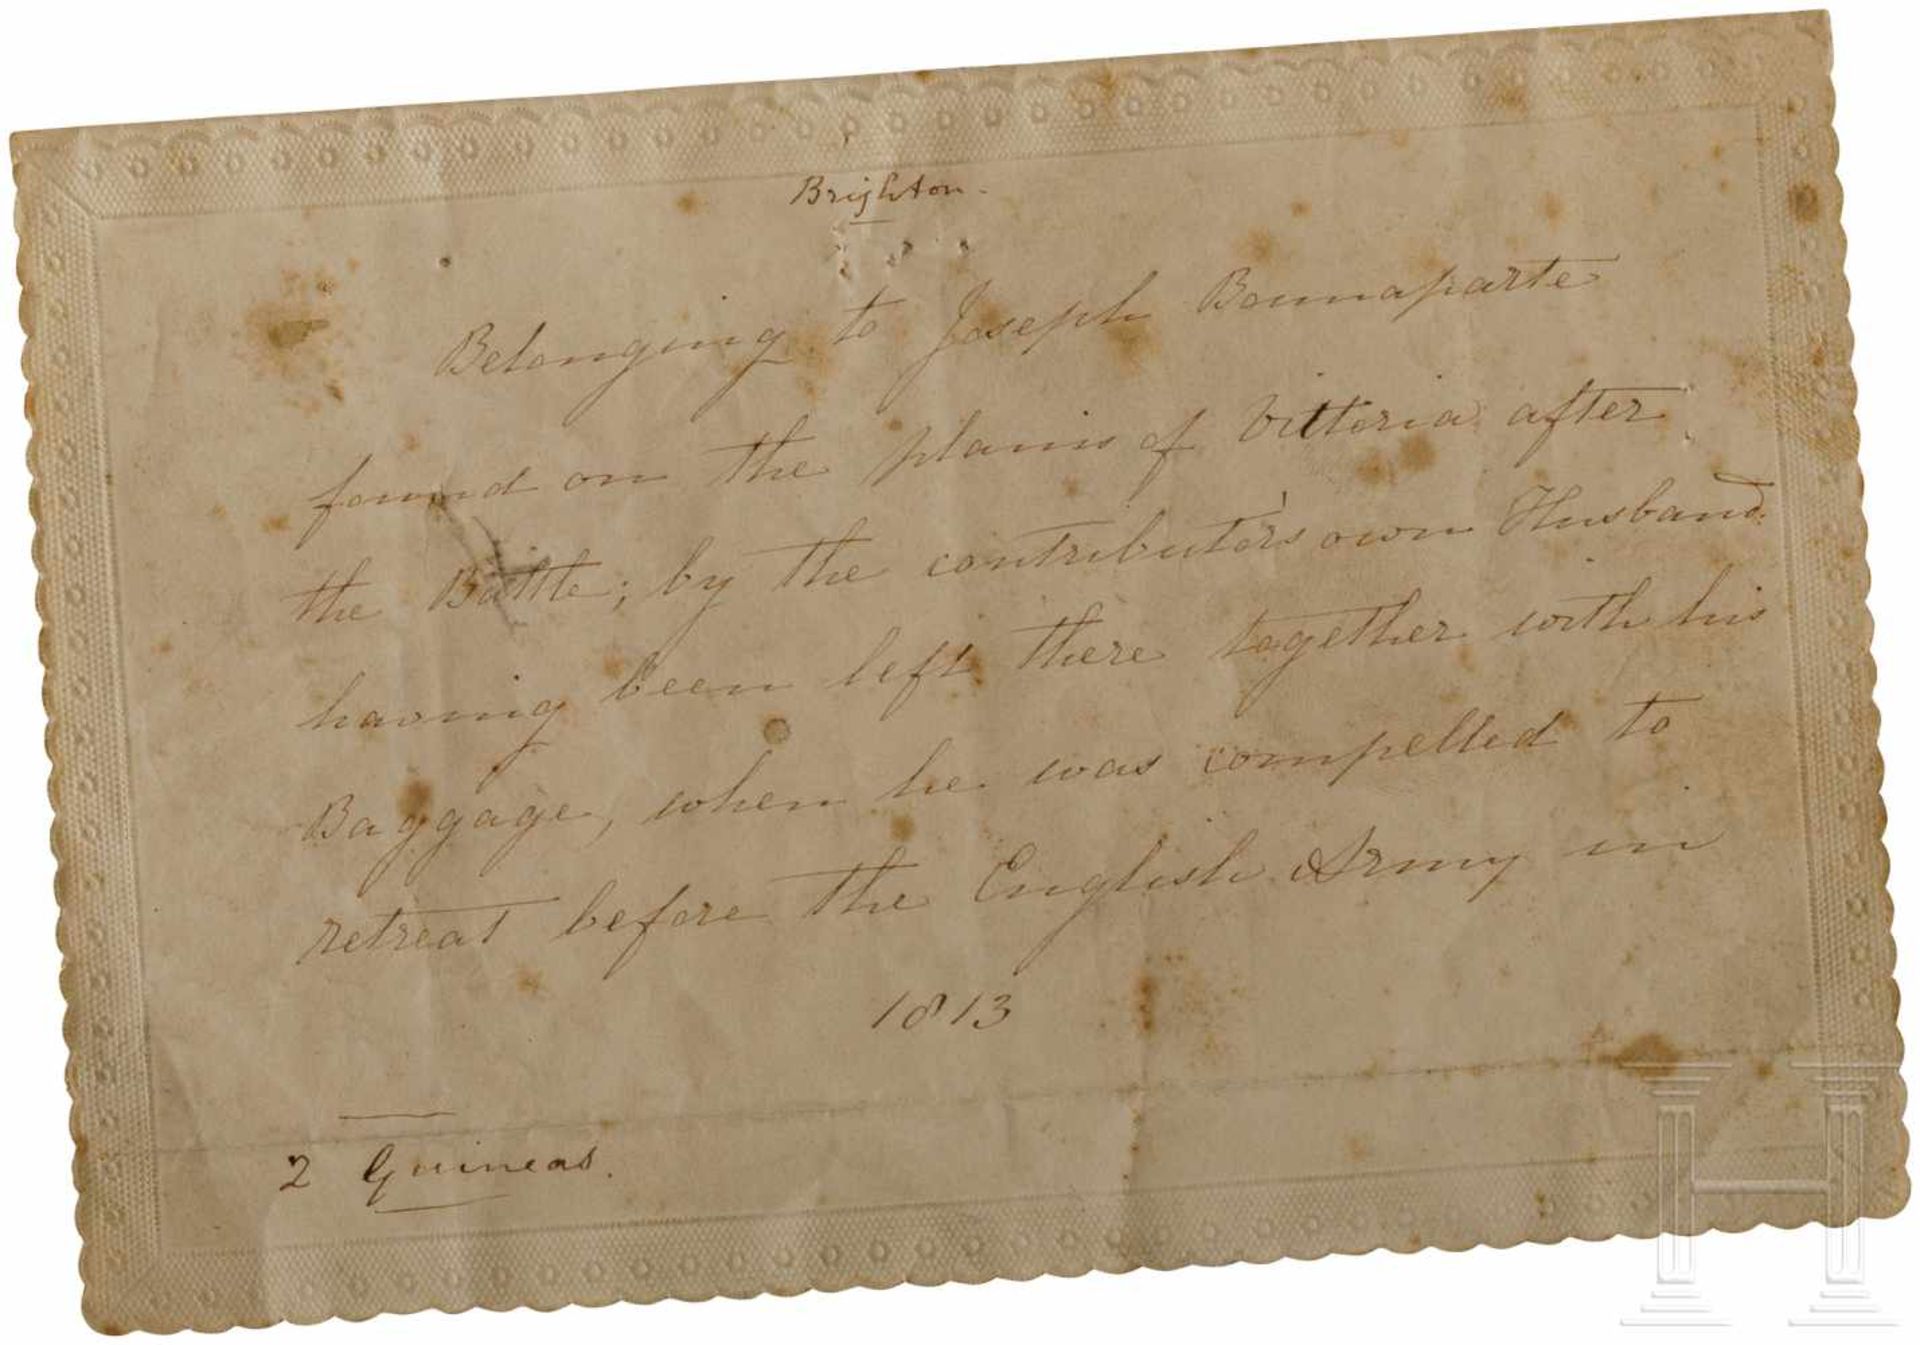 Brighton.
Belonging to Joseph Bonnaparte
found on the plains of Vittoria after
the Battle; by the contributor's own Husband.
having been left there together with his
Baggage, when he was compelled to
retreat before the English Army in
1813
2 Guineas.